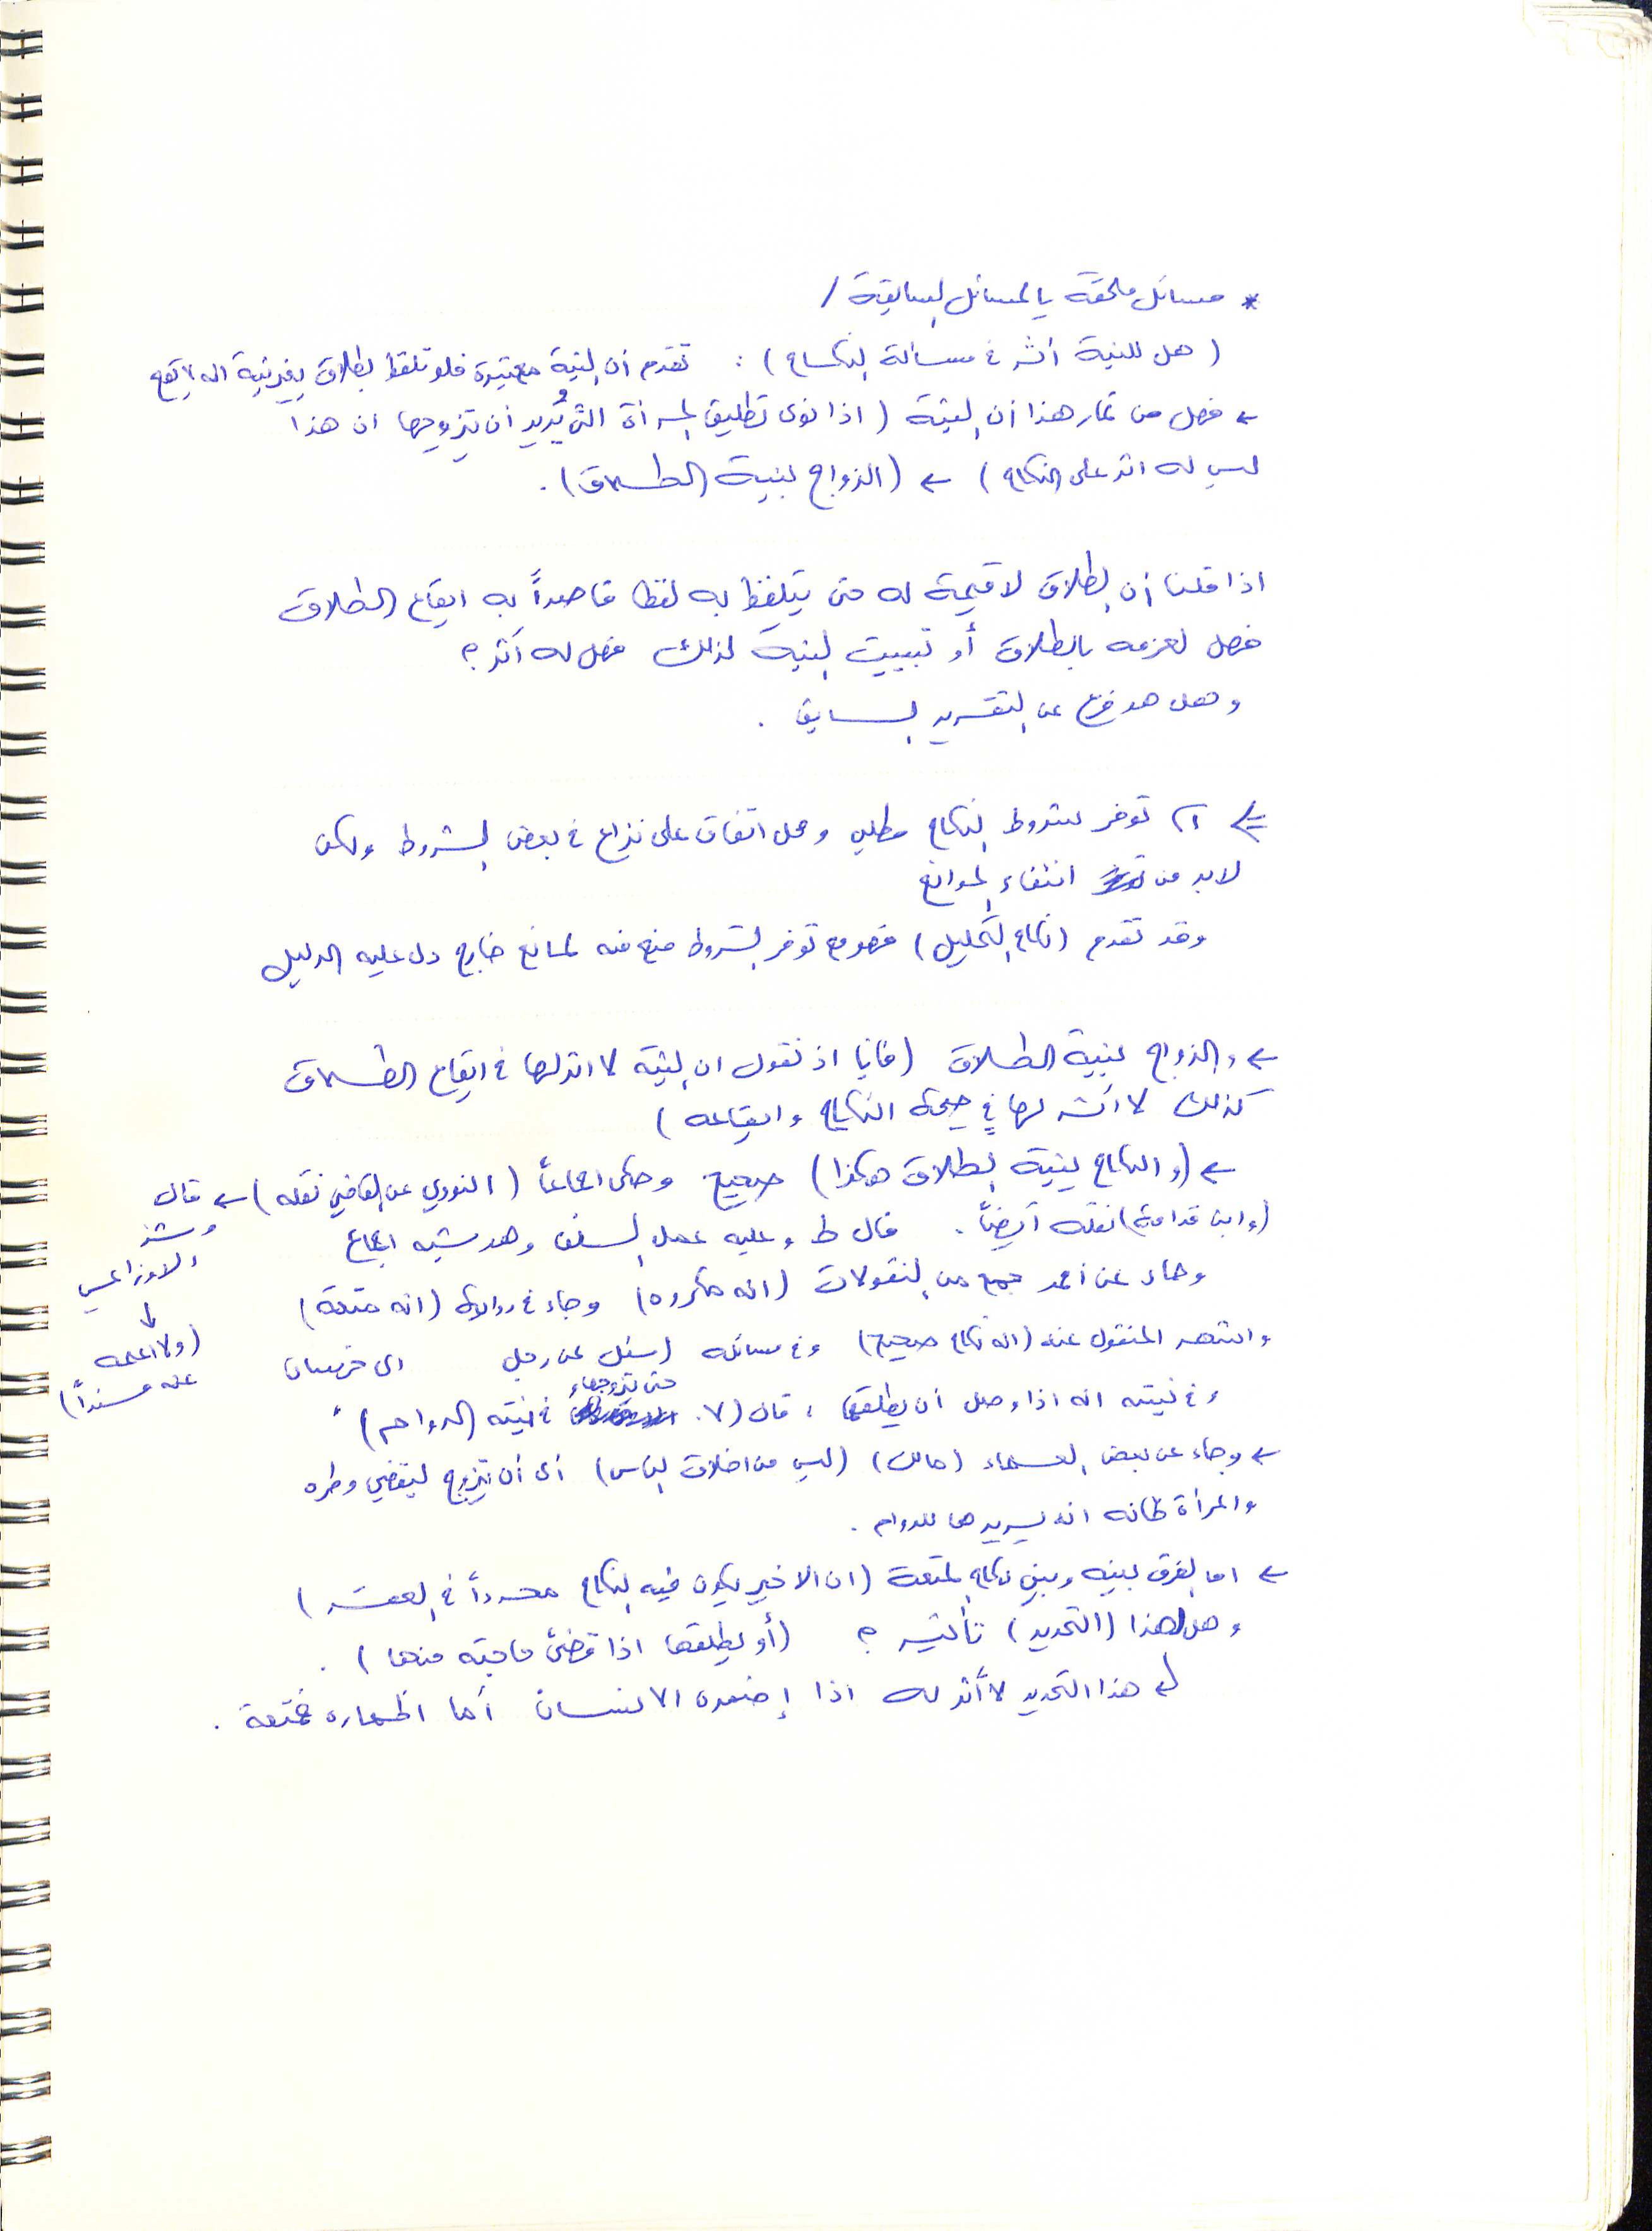 * مسائل ملحقة بالمسائل السابقة /
( هل للنية أثر في مسألة النكاح ) : تقدم أن النية معتبرة فلو تلفظ بطلاق بغير نية انه لا يقع
← فهل من ثمار هذا أن النية ( اذا نوى تطليق المرأة التي يُريد أن يتزوجها ان هذا
ليس له اثر على النكاح ) ← ( الزواج بنية الطلاق ) .
اذا قلنا أن الطلاق لا قيمة له حتى يتلفظ به لفظا قاصداً به ايقاع الطلاق
فهل لعزمه بالطلاق أو تبييت النية لذلك فهل له أثر ؟
وهل هو فرع عن التقرير السابق .
توفر شروط النكاح مطلب ومحل اتفاق على نزاع في بعض الشروط ولكن
لابد من انتفاء الموانع
وقد تقدم ( نكاح التحليل ) فهو مع توفر الشروط منع منه لمانع خارج دل عليه الدليل
← والزواج بنية الطلاق ( فإنا اذ نقول ان النية لا اثر لها في ايقاع الطلاق
كذلك لا أثر لها في صحة النكاح وايقاعه )
← ( والنكاح بنية الطلاق هكذا ) صحيح وحكى اجماعاً ( النووي عن القاضي نقله ) ← قال
وشذ
الاوزاعي
↓
( ولا اعلمه
عنه مسنداً )
( وابن قدامة ) نقله أيضاً . قال ط وعليه عمل السلف وهو شبه اجماع
وجاء عن أحمد جمع من النقولات ( انه مكروه ) وجاء في رواية ( انه متعة )
واشهر المنقول عنه ( انه نكاح صحيح ) وفي مسائله ( سئل عن رجل الى خرسان
وفي نيته انه اذا وصل أن يطلقها ، قال ( لا . حتى يتزوجها وفي نيته ( الدوام )
← وجاء عن بعض العلماء ( مالك ) ( ليس من اخلاق الناس ) أى أن يتزوج ليقضي وطره
والمرأة ظانه انه يريدها للدوام .
← اما الفرق بينه وبين نكاح المتعة ( ان الاخير يكون فيه النكاح محدداً في العقد )
وهل لهذا ( التحديد ) تأثير ؟ ( أو يطلقها اذا قضى حاجته منها ) .
↵ هذا التحديد لا أثر له اذا إضمره الانسان أما اظهاره فمتعة .